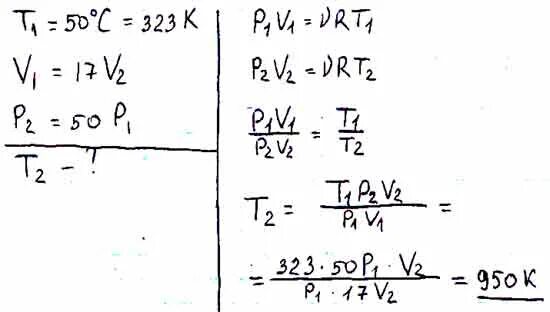 T₁ = 50°C = 323 K
V₁ = 17 V₂
P₂ = 50 P₁
T₂ - ?
P₁V₁ = νRT₁
P₂V₂ = νRT₂
P₁V₁/P₂V₂ = T₁/T₂
T₂ = T₁P₂V₂/P₁V₁ =
= 323·50P₁·V₂/P₁·17V₂ = 950 K